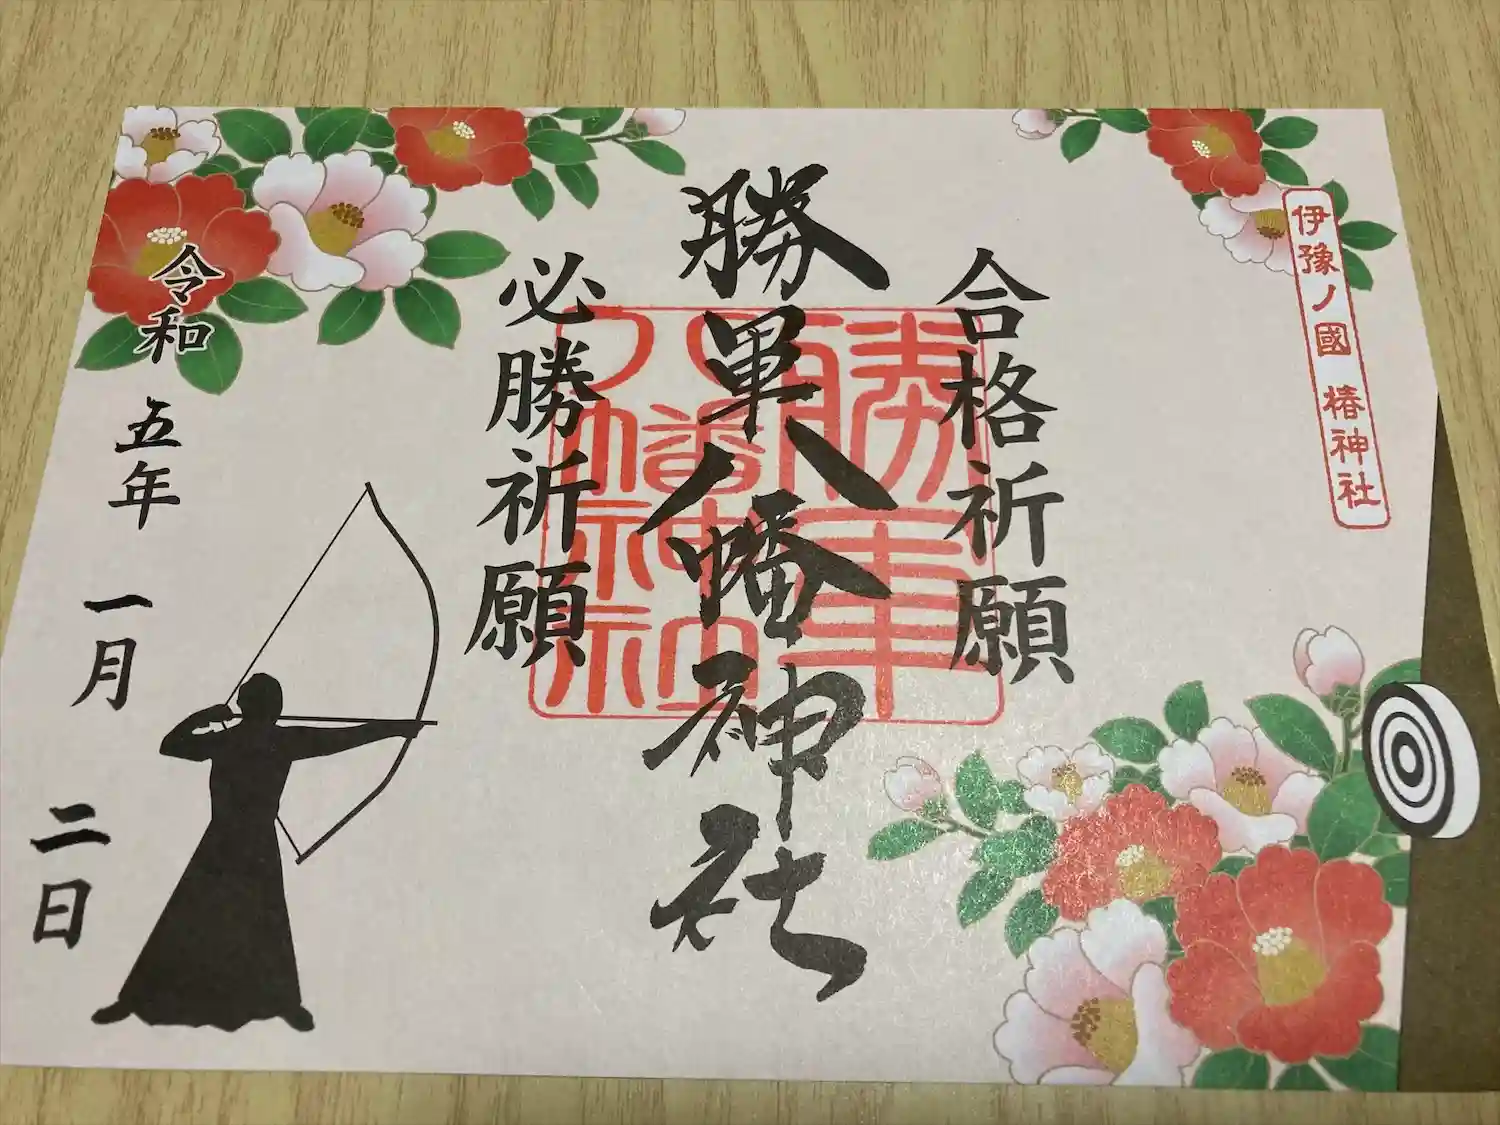 伊豫ノ國 椿神社
合格祈願
勝軍八幡神社
勝軍八幡神社
必勝祈願
令和五年 一月 二日